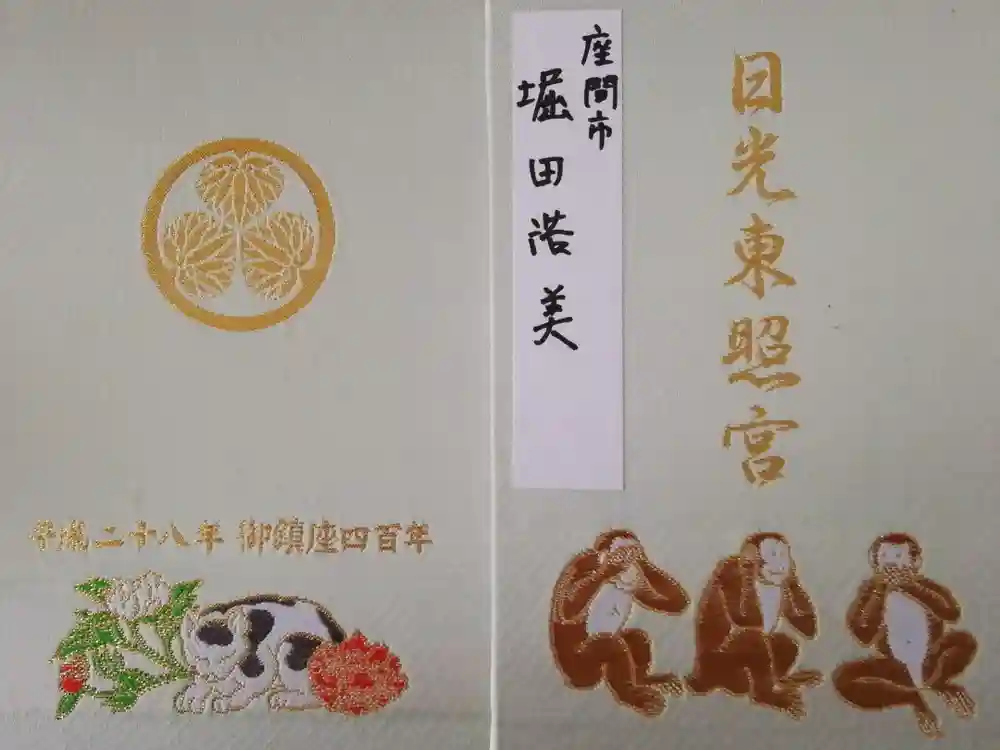 日光東照宮
座間市
堀田浩美
平成二十八年 御鎮座四百年